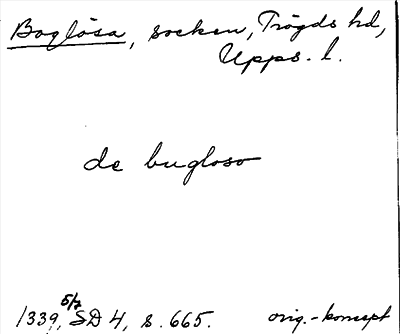 Boglösa, socken, Trögds hd,
Upps. l.
de bugloso
1339, 5/7 SD 4, s. 665. orig.-koncept